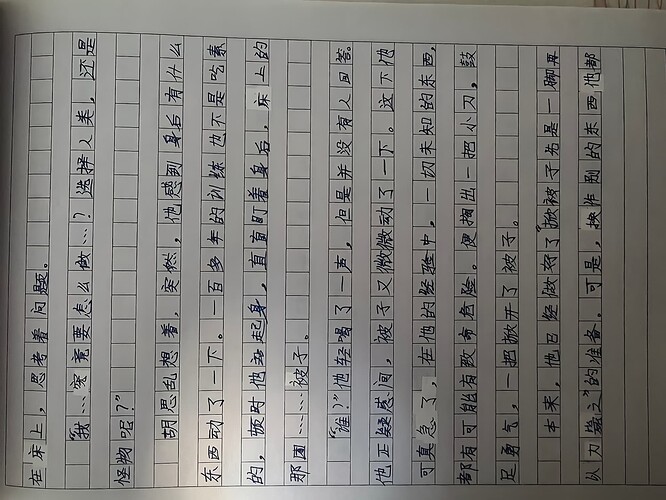 在床上，思考着问题。
“我……究竟要怎么做……？选择人类，还是
怪物呢？”
胡思乱想着，突然，他感到身后有什么
东西动了一下。一百多年的训练也不是吃素
的，顿时他站起身，直直盯着身后，床上的
那团……被子。
“谁？”他轻喝了一声，但是并没有人回答。
他正疑惑间，被子又微微动了一下。这下他
可真急了，在他的经验中，一切未知的东西，
都有可能有致命危险。便掏出一把小刀，鼓
足勇气，一把掀开了被子。
本来，他已经做好了“掀被子先是一脚再
以刀戳之”的准备。可是，换作别的东西他都